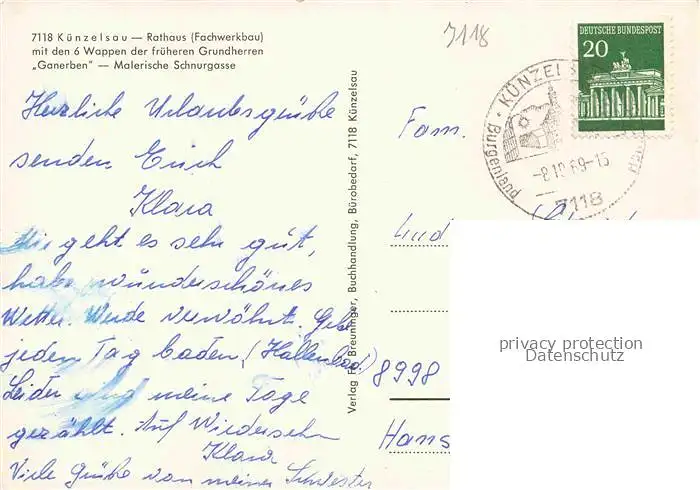 7118 Künzelsau — Rathaus (Fachwerkbau)
mit den 6 Wappen der früheren Grundherren
„Ganerben" — Malerische Schnurgasse
7118
DEUTSCHE BUNDESPOST
20
KÜNZEL
Burgenland
-8.10.69-15
7118
Herzliche Urlaubsgrüße
senden Euch
Klara
Mir geht es sehr gut,
habe wunderschönes
Wetter. Werde verwöhnt. Gehe
jeden Tag baden (Hallenbad)
Leider sind meine Tage
gezählt. Auf Wiedersehn
Klara
Viele Grüße von meiner Schwester
Verlag Fr. Breuninger, Buchhandlung, Bürobedarf, 7118 Künzelsau
Fam.
Lud
8998
Hans
privacy protection
Datenschutz